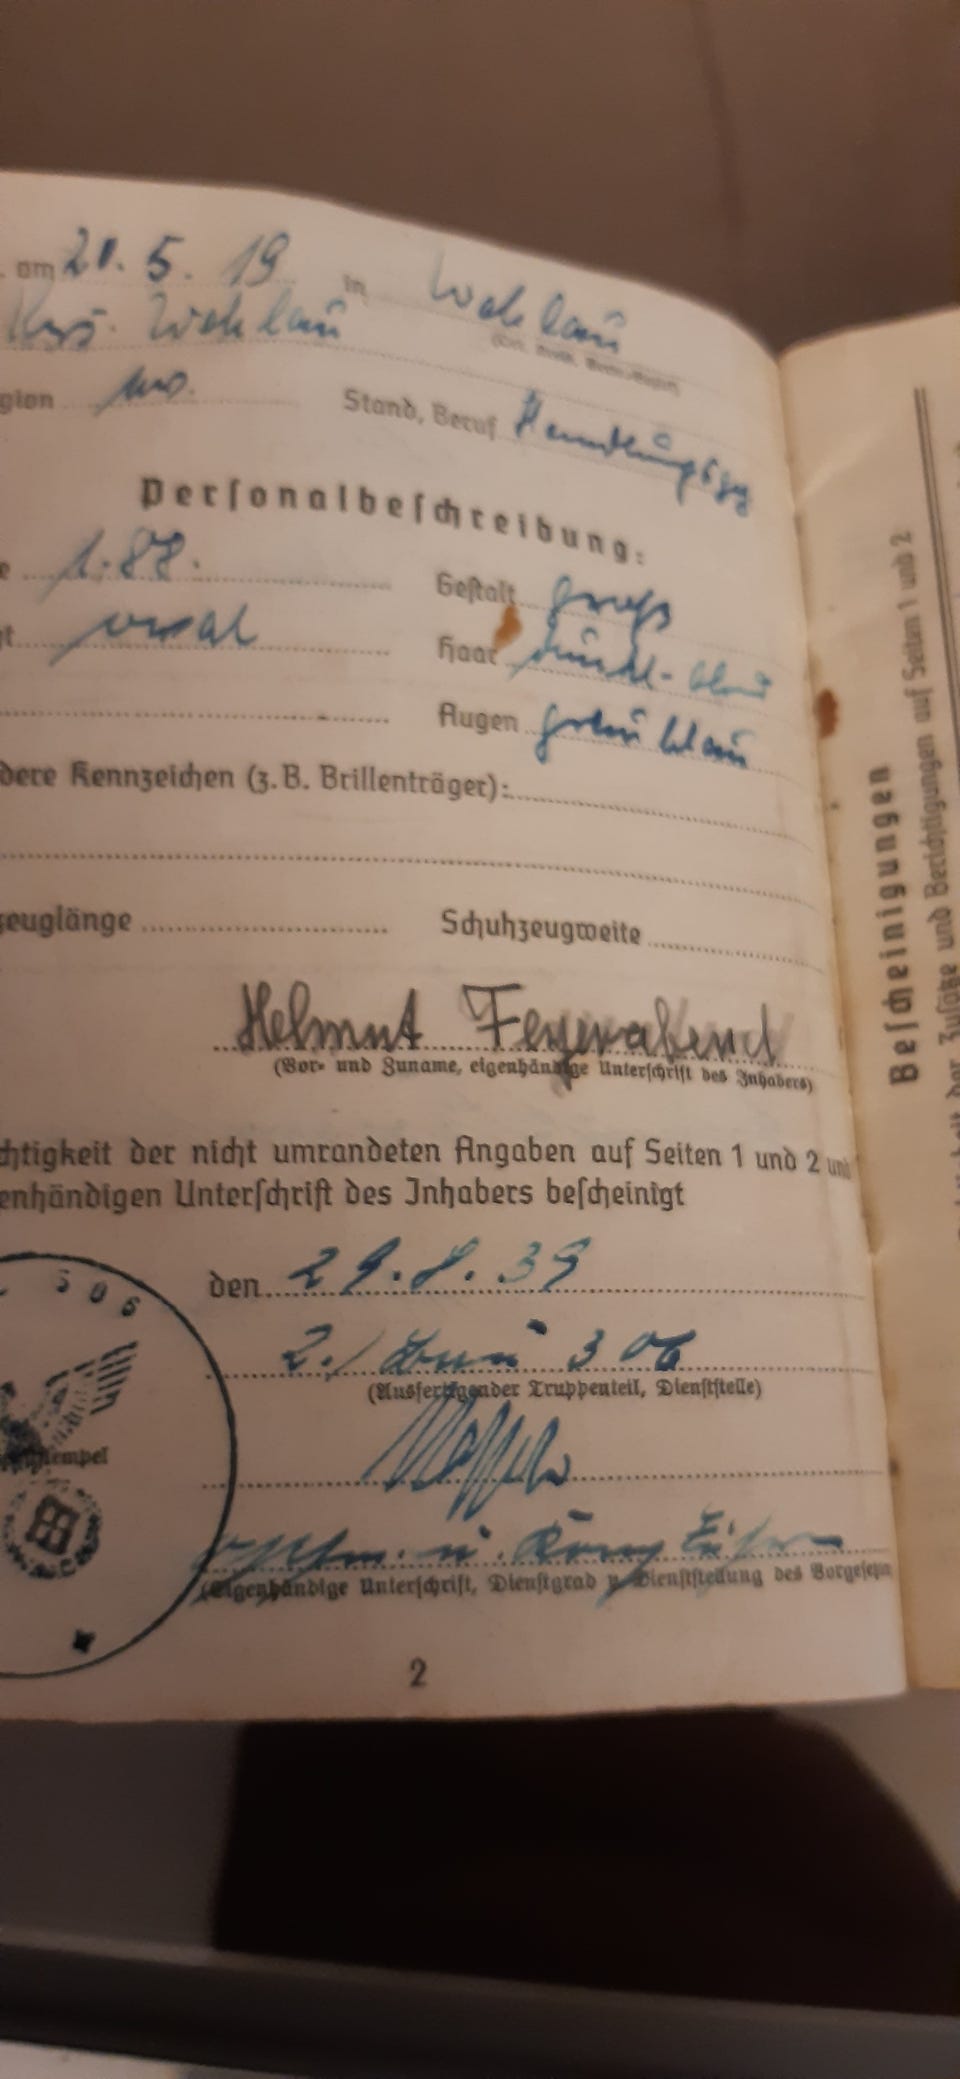 . am 20. 5. 19 in Wehlau
(Ort, Kreis, Verw.-Bezirk)
Krs. Wehlau
gion Stand, Beruf Handlungsg
Personalbeschreibung:
e 1.88. Gestalt groß
t oval Haar dunkel-
Augen graublau
dere Kennzeichen (z. B. Brillenträger):
zeuglänge Schuhzeugweite
Helmut Feyerabend
(Vor- und Zuname, eigenhändige Unterschrift des Inhabers)
chtigkeit der nicht umrandeten Angaben auf Seiten 1 und 2 und
enhändigen Unterschrift des Inhabers bescheinigt
506
den 29.8.39
2./ 306
(Ausfertigender Truppenteil, Dienststelle)
stempel
u. Komp. Führer
(Eigenhändige Unterschrift, Dienstgrad u. Dienststellung des Vorgesetzten
2
Bescheinigungen
der Zusätze und Berichtigungen auf Seiten 1 und 2